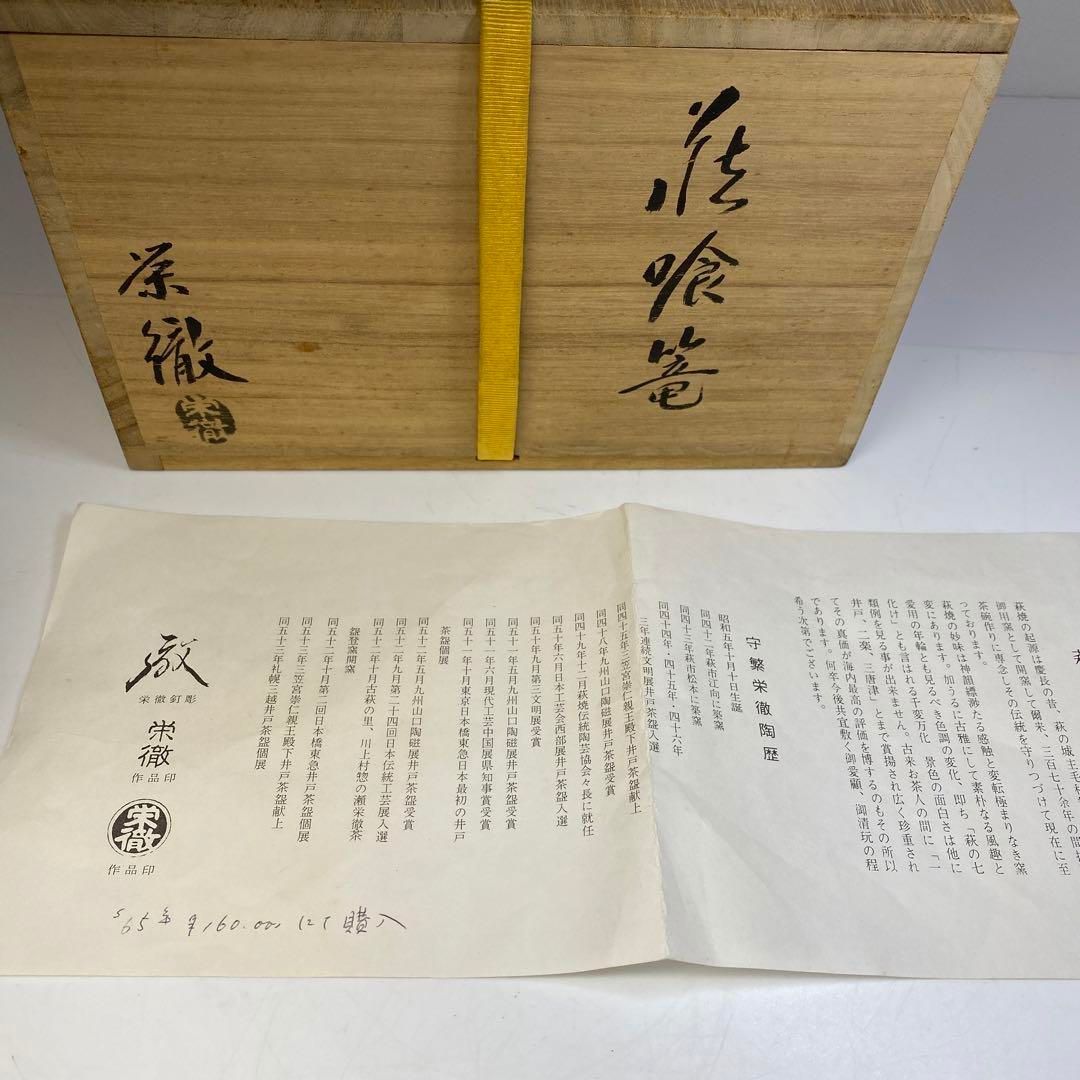 萩喰篭
栄徹
栄徹
萩焼の起源は慶長の昔、萩の城主毛
御用窯として開窯して爾来、三百七十余年の間
茶碗作りに専念しその伝統を守りつづけて現在に至
っております。
萩焼の妙味は神韻縹渺たる感触と変転極まりなき窯
変にあります。加うるに古雅にして素朴なる風趣と
愛用の年輪とも見るべき色調の変化、即ち「萩の七
化け」とも言はれる千変万化 景色の面白さは他に
類例を見る事が出来ません。古来お茶人の間に「一
井戸、二楽、三唐津」とまで賞揚され広く珍重され
てその真価が海内最高の評価を博するのもその所以
であります。何卒今後共宜敷く御愛顧、御清玩の程
希う次第でございます。
守繁栄徹陶歴
昭和五年十月十日生誕
同四十二年萩市江向に築窯
同四十三年萩市松本に築窯
同四十四年・四十五年・四十六年
三年連続文明展井戸茶盌入選
同四十五年三笠宮崇仁親王殿下井戸茶盌献上
同四十八年九州山口陶磁展井戸茶盌受賞
同四十九年十二月萩焼伝統陶芸協会々長に就任
同五十年六月日本工芸会西部展井戸茶盌入選
同五十年九月第三文明展受賞
同五十一年五月九州山口陶磁展井戸茶盌受賞
同五十一年六月現代工芸中国展県知事賞受賞
同五十一年十月東京日本橋東急日本最初の井戸
茶盌個展
同五十二年五月九州山口陶磁展井戸茶盌受賞
同五十二年九月第二十四回日本伝統工芸展入選
同五十二年十月古萩の里、川上村惣の瀬栄徹茶
盌登窯開窯
同五十二年十月第二回日本橋東急井戸茶盌個展
同五十三年三笠宮崇仁親王殿下井戸茶盌献上
同五十三年札幌三越井戸茶盌個展
栄徹釘彫
栄徹
作品印
栄徹
作品印
S65年 ¥160.000 にて購入